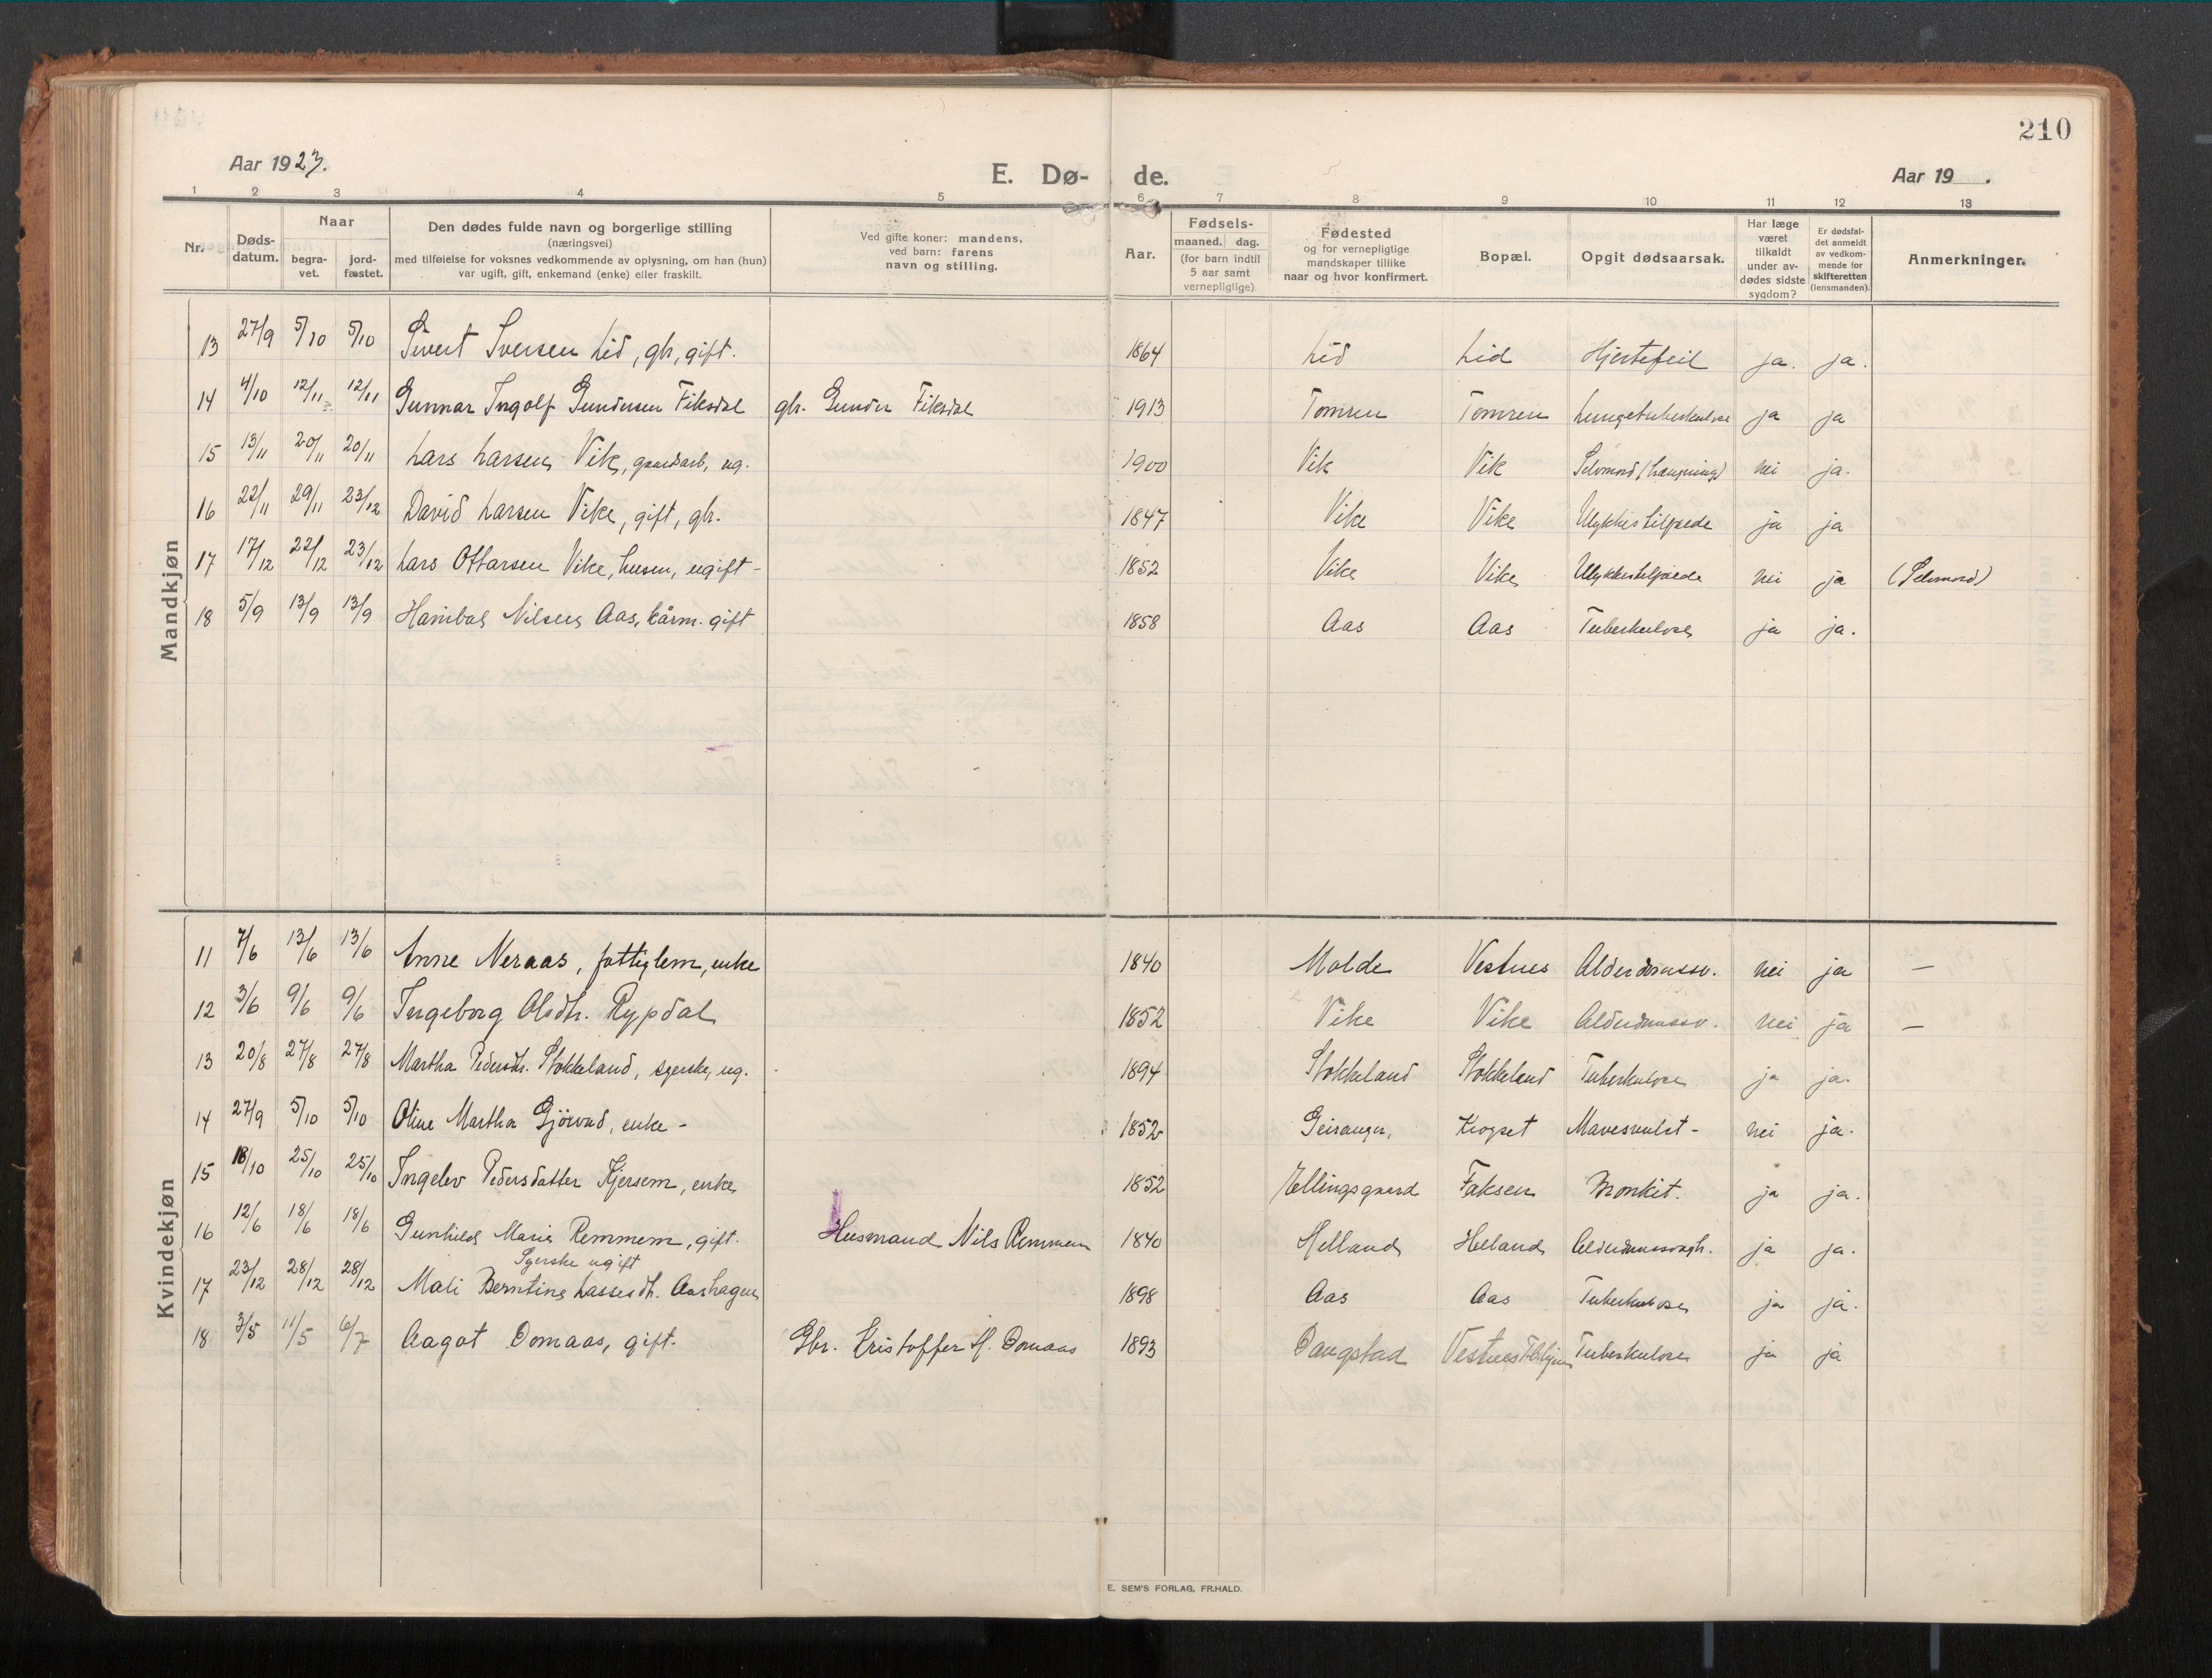 210
Aar 1923.
E. Dø- de.
Aar 19 .
1 2 3 4 5 6 7 8 9 10 11 12 13
Nr.
Døds-
datum.
Naar
begra-
vet.
jord-
fæstet.
Den dødes fulde navn og borgerlige stilling
(næringsvei)
med tilføielse for voksnes vedkommende av oplysning, om han (hun)
var ugift, gift, enkemand (enke) eller fraskilt.
Ved gifte koner: mandens,
ved barn: farens
navn og stilling.
Aar.
Fødsels-
maaned. dag.
(for barn indtil
5 aar samt
vernepligtige)
Fødested
og for vernepligtige
mandskaper tillike
naar og hvor konfirmert.
Bopæl.
Opgit dødsaarsak.
Har læge
været
tilkaldt
under av-
dødes sidste
sygdom?
Er dødsfal-
det anmeldt
av vedkom-
mende for
skifteretten
(lensmanden).
Anmerkninger.
Mandkjøn
13 27/9 5/10 5/10 Sivert Iversen Lid, gbr, gift. 1864 Lid Lid Hjertefeil ja. ja.
14 4/10 12/11 12/11 Gunnar Ingolf Gundersen Fiksdal gbr. Gunder Fiksdal 1913 Tomren Tomren Lungetuberkulose ja ja
15 13/11 20/11 20/11 Lars Larsen Vik, gaardarb, ug. 1900 Vik Vik Selvmord (hængning) nei ja.
16 22/11 29/11 23/12 David Larsen Vike, gift, gbr. 1847 Vike Vike Ulykkestilfælde ja ja
17 17/12 22/12 23/12 Lars Ottarsen Vike, husm, ugift - 1852 Vike Vike Ulykkestilfælde nei ja (Selvmord)
18 5/9 13/9 13/9 Hanibal Nilsen Aas, kårm. gift 1858 Aas Aas Tuberkulose ja ja.
Kvindekjøn
11 7/6 13/6 13/6 Anne Neraas, fattiglem, enke 1840 Molde Vestnes Alderdomssv. nei ja —
12 3/6 9/6 9/6 Ingeborg Olsdtr. Rypdal 1852 Vike Vike Alderdomssv. nei ja —
13 20/8 27/8 27/8 Martha Pedersdtr. Stokkeland, syerske, ug. 1894 Stokkeland Stokkeland Tuberkulose ja ja.
14 27/9 5/10 5/10 Oline Martha Gjörvad, enke - 1852 Geiranger, Krogset Mavesvulst - nei ja.
15 18/10 25/10 25/10 Ingelev Pedersdatter Kjersem, enke 1852 Ellingsgaard Faksen Bronkit. ja ja.
16 12/6 18/6 18/6 Gunhild Marie Remmem, gift. Husmand Nils Remmem 1840 Helland Helland Alderdomssvagh. ja ja.
Syerske ugift
17 23/12 28/12 28/12 Mali Berntine Lassesdt. Aashagen 1898 Aas Aas Tuberkulose ja ja.
18 3/5 11/5 6/7 Aagot Domaas, gift. Gbr. Kristoffer H. Domaas 1893 Daugstad Vestnes Tuberkulose ja ja
E. SEM'S FORLAG, FR.HALD.